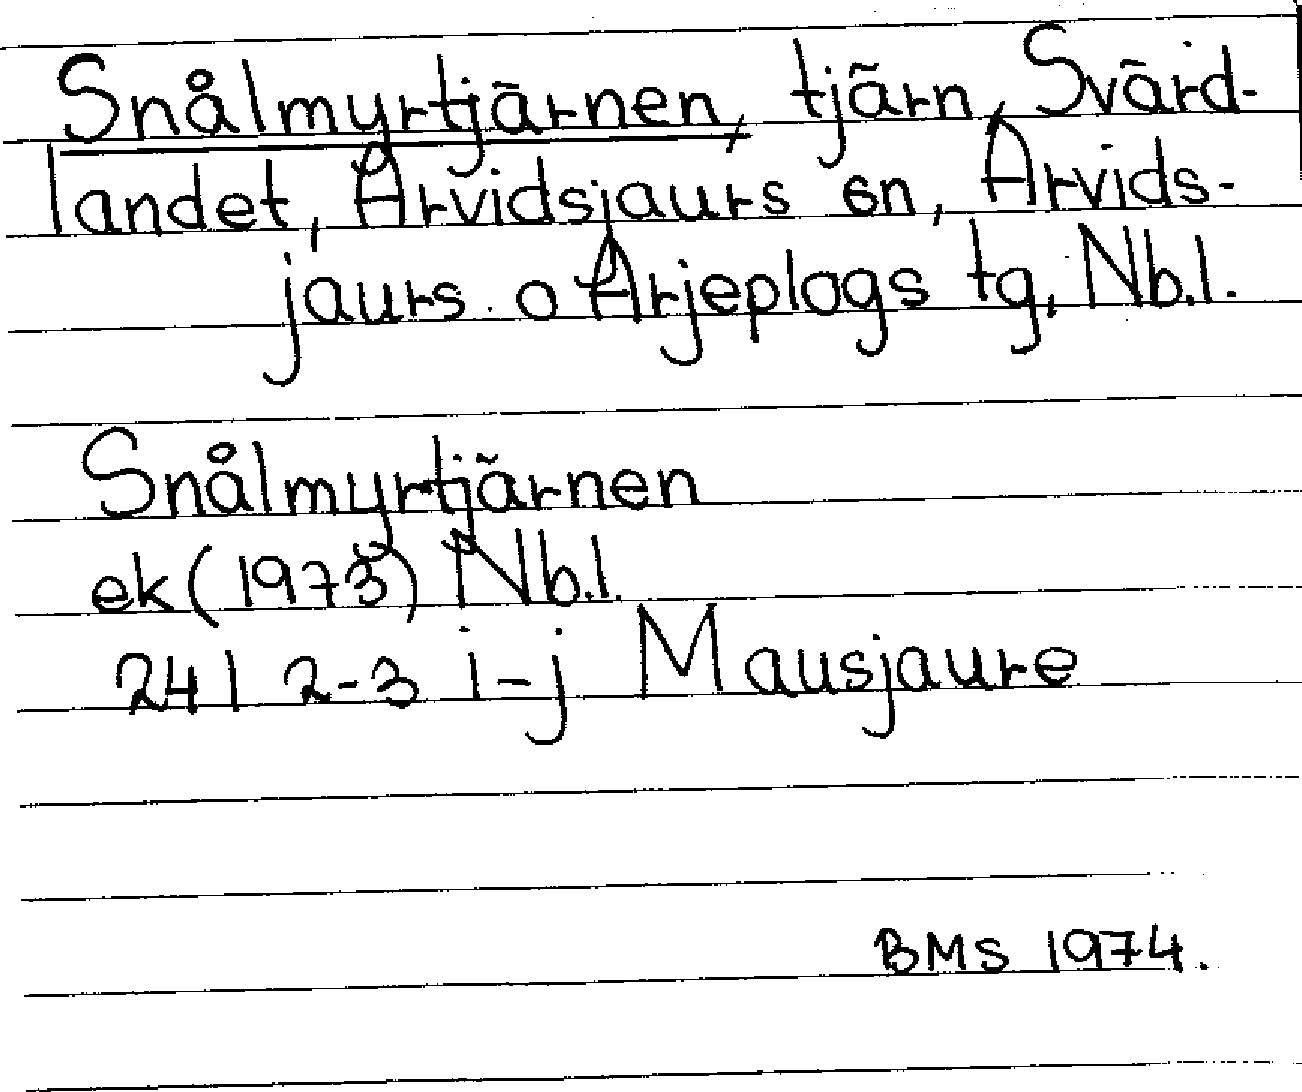 Snålmyrtjärnen, tjärn, Svärd-
landet, Arvidsjaurs sn, Arvids-
jaurs o Arjeplogs tg, Nb.l.
Snålmyrtjärnen
ek (1973) Nb.l.
24I 2-3 i-j Mausjaure
BMS 1974.